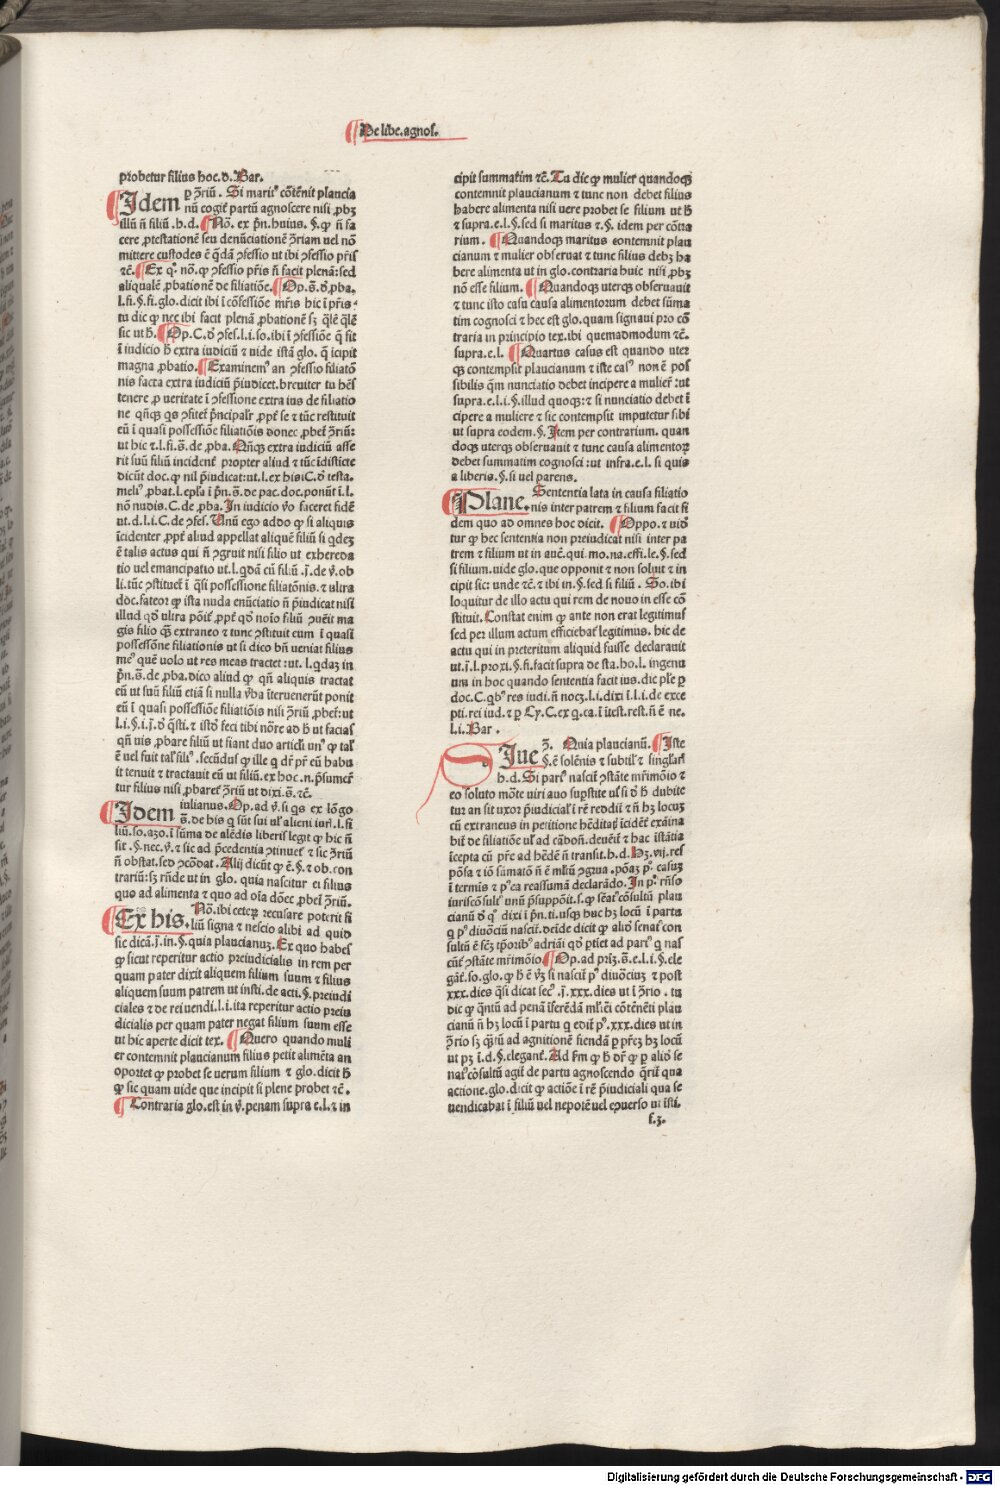 De libe. agnos.
probetur filius hoc. d. Bar.
Idem ꝑ ꝯ̃riũ. Si marit⁹ cõtẽnit plaucia
nũ cogit̃ partũ agnoscere nisi ꝓbꝫ
illũ ñ filiũ. h. d. No. ex pñ. huius. §. ꝙ ñ fa
cere ꝓtestationẽ seu denũciationẽ ꝯ̃riam uel nõ
mittere custodes ẽ q̃dã ꝯfessio ut ibi ꝯfessio pr̃is
ꝛc̃. Ex q°. nõ. ꝙ ꝯfessio pr̃is ñ facit plenã: sed
aliqualẽ ꝓbationẽ de filiatiõe. Op. s̃. d̃. ꝓba.
l. fi. §. fi. glo. dicit ibi ĩ cõfessiõe mr̃is hic ĩ pr̃is:
tu dic ꝙ nec ibi facit plenã ꝓbationẽ sꝫ q̃lẽ q̃lẽ
sic ut h̃. Op. C. d̃ ꝯfes. l. i. so. ibi ĩ ꝯfessiõe q̃ fit
ĩ iudicio h̃ extra iudiciũ ⁊ uide istã glo. q̃ ĩcipit
magna ꝓbatio. Examinem⁹ an ꝯfessio filiatõ
nis facta extra iudiciũ p̃iudicet. breuiter tu hẽs
tenere ꝓ ueritate ĩ ꝯfessione extra ius de filiatio
ne qñqꝫ qs ꝯfitet̃ p̃ncipalr̃ ꝓpt̃ se ⁊ tũc restituit
eũ ĩ quasi possessiõe filiatiõis donec ꝓbet̃ ꝯ̃riũ:
ut hic ⁊ l. fi. s̃. de ꝓba. Qñqꝫ extra iudiciũ asse
rit suũ filiũ incident̃ propter aliud ⁊ tũc ĩdisticte
dicũt doc. ꝙ nil p̃iudicat: ut. l. ex his i C. d̃ testa.
meli⁹ ꝓbat. l. ep̃la ĩ pñ. s̃. de pac. doc. ponũt ĩ. l.
nõ nudis. C. de ꝓba. In iudicio ṽo faceret fidẽ
ut. d. l. i. C. de ꝯfes. Unũ ego addo ꝙ si aliquis
ĩcidenter ꝓpt̃ aliud appellat aliquẽ filiũ si qdeꝫ
ẽ talis actus qui ñ ꝯgruit nisi filio ut exhereda
tio uel emancipatio ut. l. qdã cũ filiũ. j̃. de ṽ. ob
li. tũc ꝯstituet̃ ĩ q̃si possessione filiatõnis. ⁊ ultra
doc. fateor ꝙ ista nuda enũciatio ñ p̃iudicat nisi
illud qd̃ ultra põit̃ ꝓpt̃ qd̃ noĩo filiũ ꝯuẽit ma
gis filio qꝫ extraneo ⁊ tunc ꝯstituit eum ĩ quasi
possessõne filiationis ut si dico bñ ueniat filius
me⁹ quẽ uolo ut res meas tractet: ut. l. qdaꝫ in
pñ. s̃. de ꝓba. dico aliud ꝙ qñ aliquis tractat
eũ ut suũ filiũ etiã si nulla ṽba ĩteruenerũt ponit
eũ ĩ quasi possessiõe filiatiõis nisi ꝯ̃riũ ꝓbet̃: ut
l. i. §. i. j̃. d̃ q̃sti. ⁊ istd̃ feci tibi nõre ad h̃ ut facias
qñ uis ꝓbare filiũ ut fiant duo articli un⁹ ꝙ tal̃
ẽ uel fuit tal̃ fili⁹. secũdus ꝙ ille q dr̃ pr̃ eũ habu
it tenuit ⁊ tractauit eũ ut filiũ. ex hoc. n. p̃sumet̃
tur filius nisi ꝓbaret̃ ꝯ̃riũ ut dixi. s̃. ꝛc̃.
Idem iulianus. Op. ad ṽ. si qs ex lõgo
s̃. de his q sũt sui ul̃ alieni iuri. l. si
liũ. so. azo. ĩ sũma de alẽdis liberis legit ꝙ hic ñ
sit. §. nec. ṽ. ⁊ sic ad p̃cedentia ꝯtinuet̃ ⁊ sic ꝯ̃riũ
ñ obstat. sed ꝯcõdat. Alij dicũt ꝙ ẽ. §. ⁊ ob. con
trariũ: sꝫ rñde ut in glo. quia nascitur ei filius
quo ad alimenta ⁊ quo ad oĩa dõec ꝓbet̃ ꝯ̃riũ.
Ex his. Nõ. ibi ceteꝝ recusare poterit fi
liũ signa ⁊ nescio alibi ad quid
sic dicã. j̃. in. §. quia plaucianuꝫ. Ex quo habes
ꝙ sicut reperitur actio preiudicialis in rem per
quam pater dixit aliquem filium suum ⁊ filius
aliquem suum patrem ut insti. de acti. §. preiudi
ciales ⁊ de rei uendi. l. i. ita reperitur actio preiu
dicialis per quam pater negat filium suum esse
ut hic aperte dicit tex. Quero quando muli
er contemnit plaucianum filius petit alimẽta an
oportet ꝙ probet se uerum filium ⁊ glo. dicit h̃
ꝙ sic quam uide que incipit si plene probet ꝛc̃.
Contraria glo. est in ṽ. penam supra e. l. ⁊ in
cipit summatim ꝛc̃. Tu dic ꝙ mulier quandoqꝫ
contemnit plaucianum ⁊ tunc non debet filius
habere alimenta nisi uere probet se filium ut h̃
⁊ supra. e. l. §. sed si maritus ⁊ §. idem per cõtra
rium. Quandoqꝫ maritus contemnit plau
cianum ⁊ mulier obseruat ⁊ tunc filius debꝫ ha
bere alimenta ut in glo. contraria huic nisi ꝓbꝫ
nõ esse filium. Quandoqꝫ uterqꝫ obseruauit
⁊ tunc isto casu causa alimentorum debet sũma
tim cognosci ⁊ hec est glo. quam signaui pro cõ
traria in principio tex. ibi quemadmodum ꝛc̃.
supra. e. l. Quartus casus est quando uter
qꝫ contempsit plaucianum ⁊ iste cas⁹ non ẽ pos
sibilis qm̃ nunciatio debet incipere a mulier̃: ut
supra. e. l. i. §. illud quoqꝫ: ⁊ si nunciatio debet ĩ
cipere a muliere ⁊ sic contempsit imputetur sibi
ut supra eodem. §. Item per contrarium. quan
doqꝫ uterqꝫ obseruauit ⁊ tunc causa alimentoꝝ
debet summatim cognosci: ut infra. e. l. si quis
a liberis. §. si uel parens.
Plane. Sententia lata in causa filiatio
nis inter patrem ⁊ filium facit fi
dem quo ad omnes hoc dicit. Oppo. ⁊ uid̃
tur ꝙ hec sententia non preiudicat nisi inter pa
trem ⁊ filium ut in auẽ. qui. mo. na. effi. le. §. sed
si filium. uide glo. que opponit ⁊ non soluit ⁊ in
cipit sic: unde ꝛc̃. ⁊ ibi in. §. sed si filiũ. So. ibi
loquitur de illo actu qui rem de nouo in esse cõ
stituit. Constat enim ꝙ ante non erat legitimus
sed per illum actum efficiebat̃ legitimus. hic de
actu qui in preteritum aliquid fuisse declarauit
ut. j̃. l. proxi. §. fi. facit supra de sta. ho. l. ingenu
um in hoc quando sententia facit ius. dic pl̃e ꝑ
doc. C. qb⁹ res iudi. ñ nocꝫ. l. i. dixi ĩ. l. i. de exce
pti. rei iud. ⁊ ꝑ Cy. C. ex q. ca. ĩ ĩtest. rest. ñ ẽ ne.
l. i. Bar.
Siue ꝯ̃. Quia plaucianũ. Iste
§. ẽ solẽnis ⁊ subtil̃ ⁊ singl̃ar̃
h. d. Si part⁹ nascit̃ ꝯstãte mr̃imõio ⁊
eo soluto mõte uiri auo suꝑstite ul̃ si d̃ h̃ dubite
tur an sit uxor p̃iudicial̃ ĩ rẽ reddit̃ ⁊ ñ hꝫ locuꝫ
cũ extraneus in petitione hẽditat̃ ĩcidẽt̃ exãina
bit̃ de filiatiõe ul̃ ad cãdoñ. deuẽit̃ ⁊ hac ĩstãtia
ĩcepta cũ pr̃e ad hẽdẽ ñ transit. h. d. Hꝫ. vij. res
põsa ⁊ iõ sumatõ ñ ẽ ml̃iũ ꝯgrua. põaꝫ p°. casuꝫ
ĩ terĩis ⁊ p° ca reassumã declarãdo. In p°. rñso
iuriscõsult⁹ unũ p̃suppõit. s. ꝙ sẽat⁹cõsultũ plau
cianũ d̃ q° dixi ĩ pñ. ti. usqꝫ huc hꝫ locũ ĩ partu
q p° diuõciũ nascit̃. deide dicit ꝙ alio senat̃ con
sultũ ẽ fẽꝫ tꝑorib⁹ adriãi qd̃ ptiet ad part̃ q nas
cũt̃ ꝯstãte mr̃imõio. Op. ad prĩꝫ. s̃. e. l. i. §. ele
gãt̃. so. glo. ꝙ h̃ ẽ ṽꝫ si nascit̃ p° diuõciuꝫ ⁊ post
xxx. dies q̃si dicat sec⁹. j̃. xxx. dies ut ĩ ꝯ̃rio. tu
dic ꝙ q̃ntũ ad penã ĩferẽdã ml̃iẽi cõtẽnẽti plau
cianũ ñ hꝫ locũ ĩ partu q edit̃ p°. xxx. dies ut in
ꝯ̃rio sꝫ q̃tũ ad agnitionẽ fiendã ꝑ pr̃eꝫ hꝫ locũ
ut pꝫ ĩ. d. §. elegant̃. Ad fm̃ ꝙ h̃ dr̃ ꝙ ꝑ alio se
nat⁹cõsultũ agit̃ de partu agnoscendo q̃rit̃ qua
actione. glo. dicit ꝙ actiõe ĩ rẽ p̃iudiciali qua se
uendicabat ĩ filiũ uel nepotẽ uel ecõuerso ut ĩsti.
f. 3.
Digitalisierung gefördert durch die Deutsche Forschungsgemeinschaft - DFG